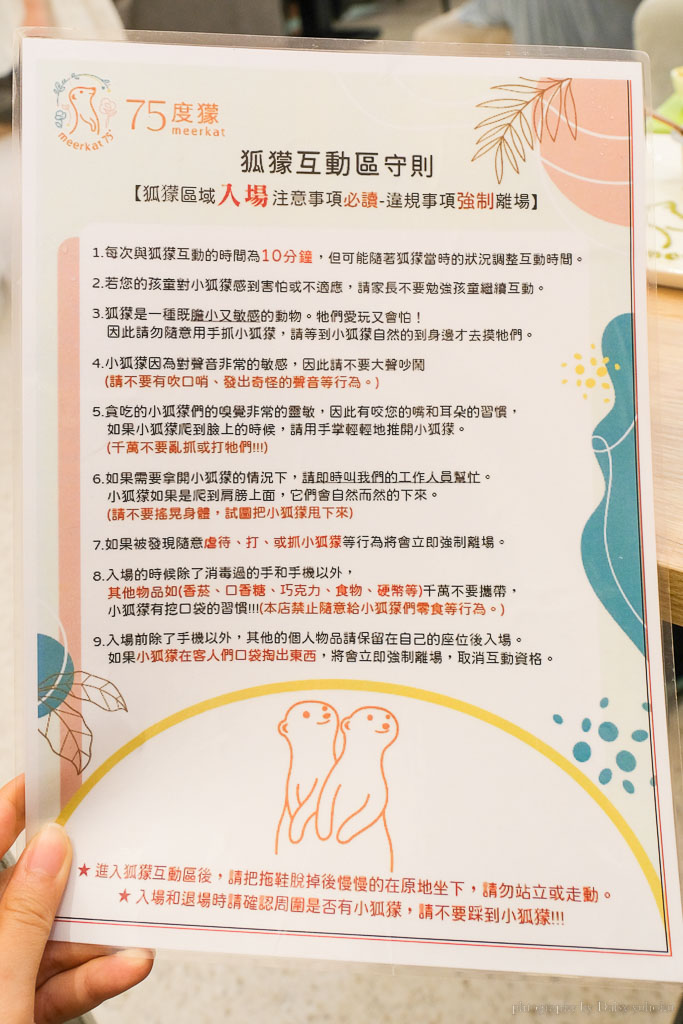 meerkat 75°
75度獴
meerkat
狐獴互動區守則
【狐獴區域入場注意事項必讀-違規事項強制離場】
1.每次與狐獴互動的時間為10分鐘，但可能隨著狐獴當時的狀況調整互動時間。
2.若您的孩童對小狐獴感到害怕或不適應，請家長不要勉強孩童繼續互動。
3.狐獴是一種既膽小又敏感的動物。牠們愛玩又會怕！
因此請勿隨意用手抓小狐獴，請等到小狐獴自然的到身邊才去摸牠們。
4.小狐獴因為對聲音非常的敏感，因此請不要大聲吵鬧
(請不要有吹口哨、發出奇怪的聲音等行為。)
5.貪吃的小狐獴們的嗅覺非常的靈敏，因此有咬您的嘴和耳朵的習慣，
如果小狐獴爬到臉上的時候，請用手掌輕輕地推開小狐獴。
(千萬不要亂抓或打牠們!!!)
6.如果需要拿開小狐獴的情況下，請即時叫我們的工作人員幫忙。
小狐獴如果是爬到肩膀上面，它們會自然而然的下來。
(請不要搖晃身體，試圖把小狐獴甩下來)
7.如果被發現隨意虐待、打、或抓小狐獴等行為將會立即強制離場。
8.入場的時候除了消毒過的手和手機以外，
其他物品如(香菸、口香糖、巧克力、食物、硬幣等)千萬不要攜帶，
小狐獴有挖口袋的習慣!!!(本店禁止隨意給小狐獴們零食等行為。)
9.入場前除了手機以外，其他的個人物品請保留在自己的座位後入場。
如果小狐獴在客人們口袋掏出東西，將會立即強制離場，取消互動資格。
★ 進入狐獴互動區後，請把拖鞋脫掉後慢慢的在原地坐下，請勿站立或走動。
★ 入場和退場時請確認周圍是否有小狐獴，請不要踩到小狐獴!!!